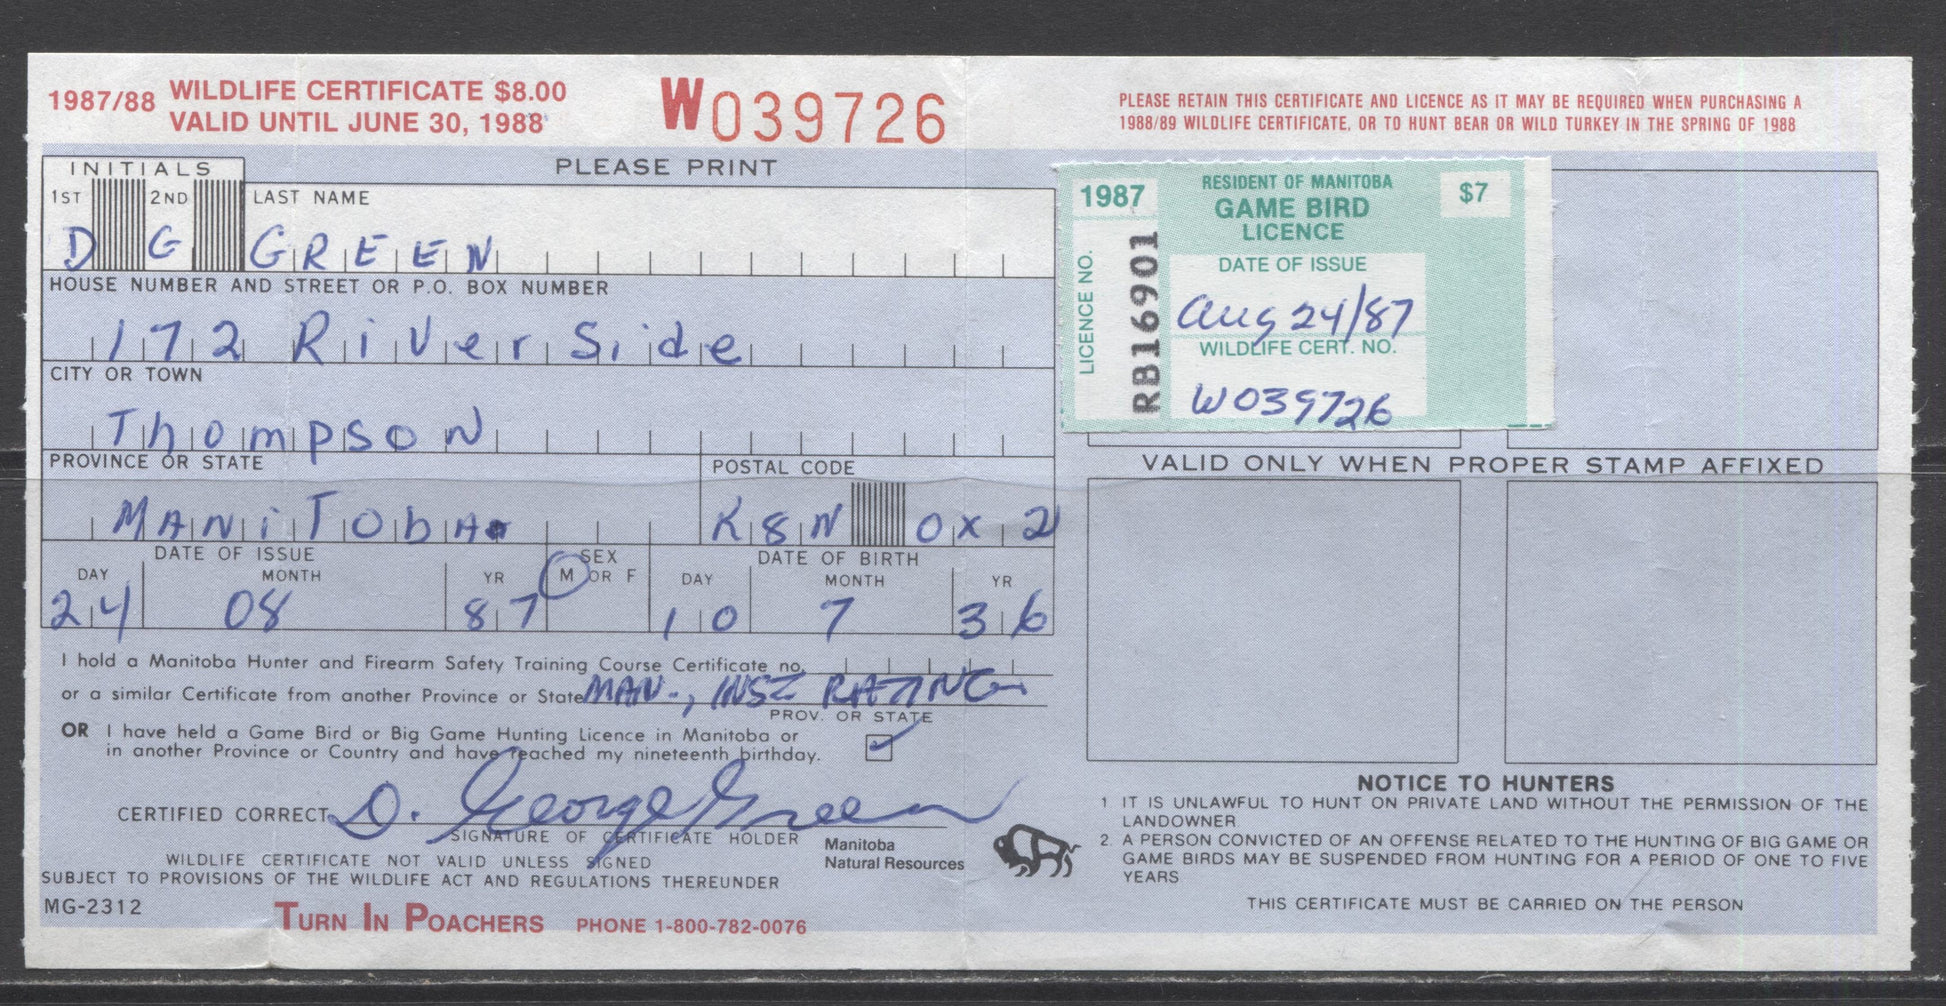 1987/88 WILDLIFE CERTIFICATE $8.00
VALID UNTIL JUNE 30, 1988
W039726
PLEASE RETAIN THIS CERTIFICATE AND LICENCE AS IT MAY BE REQUIRED WHEN PURCHASING A
1988/89 WILDLIFE CERTIFICATE, OR TO HUNT BEAR OR WILD TURKEY IN THE SPRING OF 1988
INITIALS
PLEASE PRINT
1ST 2ND LAST NAME
D G GREEN
HOUSE NUMBER AND STREET OR P.O. BOX NUMBER
172 RiverSide
CITY OR TOWN
Thompson
PROVINCE OR STATE POSTAL CODE
MANiTobA R8N 0X2
DATE OF ISSUE SEX DATE OF BIRTH
DAY MONTH YR M OR F DAY MONTH YR
24 08 87 10 7 36
I hold a Manitoba Hunter and Firearm Safety Training Course Certificate no.
or a similar Certificate from another Province or State MAN.,
PROV. OR STATE
OR I have held a Game Bird or Big Game Hunting Licence in Manitoba or
in another Province or Country and have reached my nineteenth birthday.
CERTIFIED CORRECT D. George Green
SIGNATURE OF CERTIFICATE HOLDER
WILDLIFE CERTIFICATE NOT VALID UNLESS SIGNED
SUBJECT TO PROVISIONS OF THE WILDLIFE ACT AND REGULATIONS THEREUNDER
Manitoba
Natural Resources
MG-2312
TURN IN POACHERS PHONE 1-800-782-0076
1987
RESIDENT OF MANITOBA
GAME BIRD
LICENCE
$7
LICENCE NO.
RB116901
DATE OF ISSUE
Aug 24/87
WILDLIFE CERT. NO.
W039726
VALID ONLY WHEN PROPER STAMP AFFIXED
NOTICE TO HUNTERS
1 IT IS UNLAWFUL TO HUNT ON PRIVATE LAND WITHOUT THE PERMISSION OF THE
LANDOWNER
2. A PERSON CONVICTED OF AN OFFENSE RELATED TO THE HUNTING OF BIG GAME OR
GAME BIRDS MAY BE SUSPENDED FROM HUNTING FOR A PERIOD OF ONE TO FIVE
YEARS
THIS CERTIFICATE MUST BE CARRIED ON THE PERSON